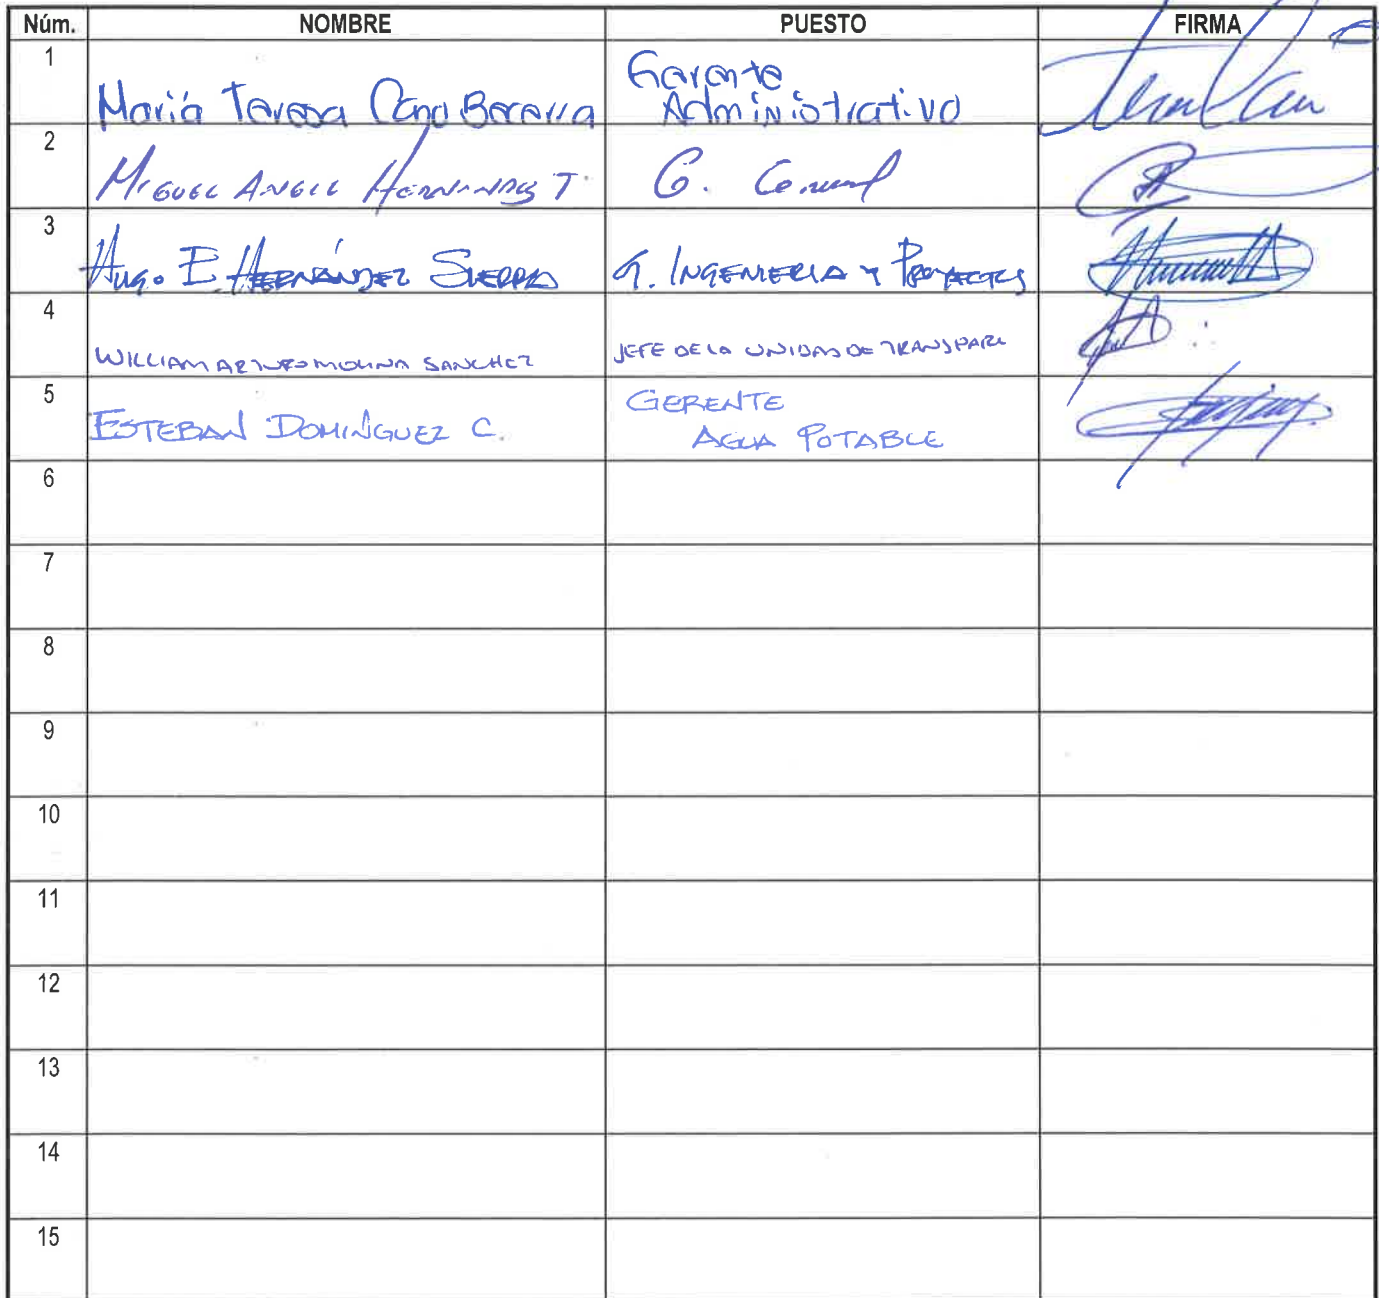 Núm. NOMBRE PUESTO FIRMA
1 María Teresa Cano Becerra Gerente Administrativo
2 MIGUEL ANGEL HERNANDEZ T. G.
3 Hugo E HERNÁNDEZ SIERRA G. INGENIERIA Y PROYECTOS
4 WILLIAM ARTURO MOLINA SANCHEZ JEFE DE LA UNIDAD DE TRANSPARE
5 ESTEBAN DOMÍNGUEZ C. GERENTE AGUA POTABLE
6
7
8
9
10
11
12
13
14
15